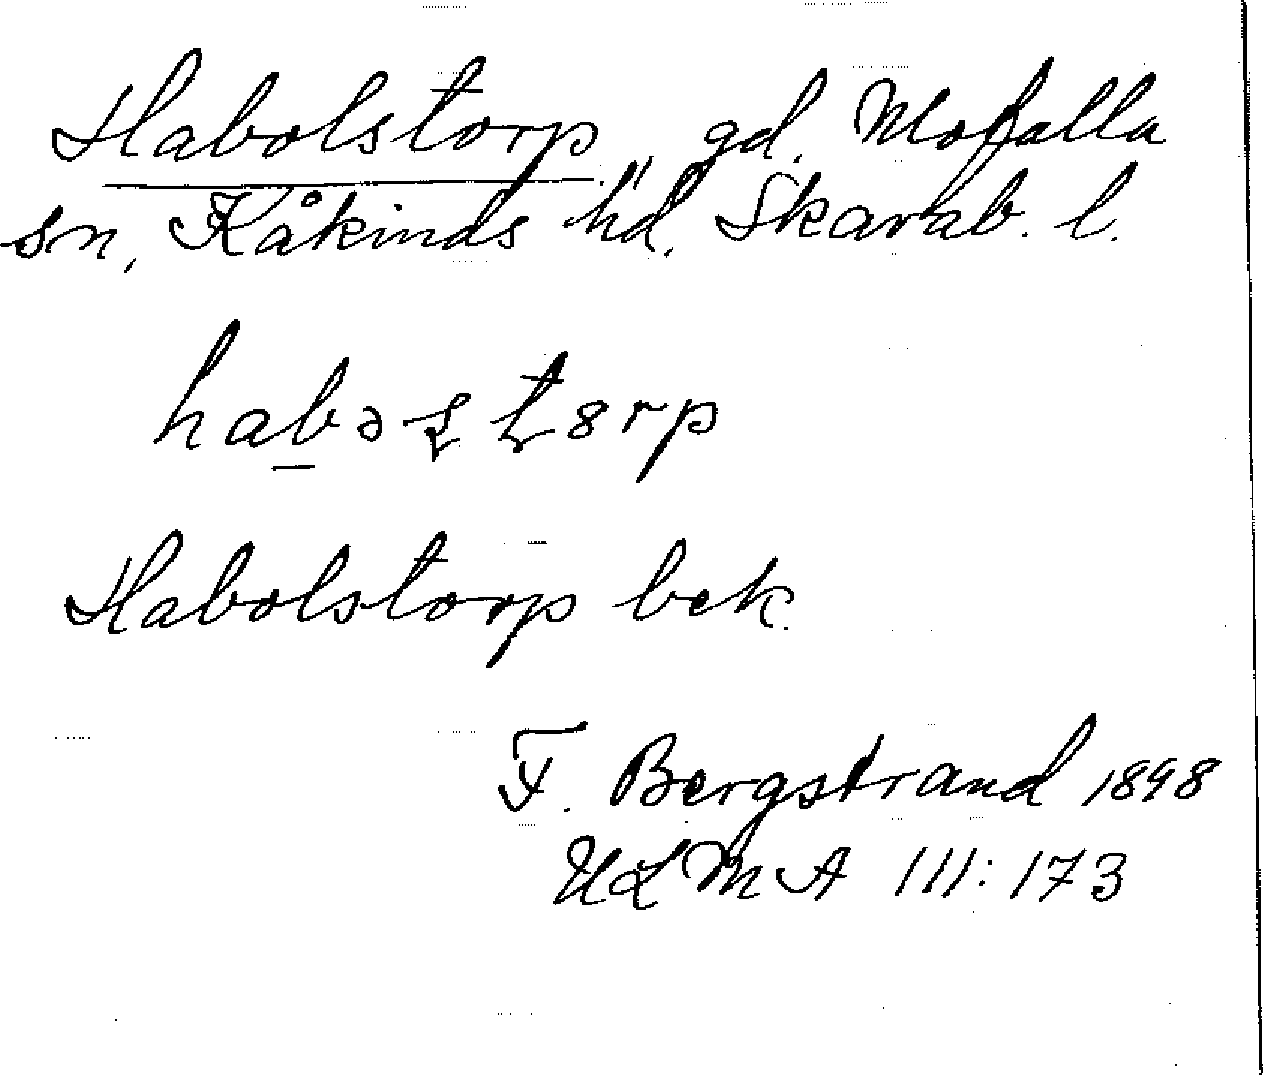 Habolstorp gd. Mofalla
sn, Kåkinds hd. Skarab. l.
Habolstorp bek.
F. Bergstrand 1898
ULMA III:173